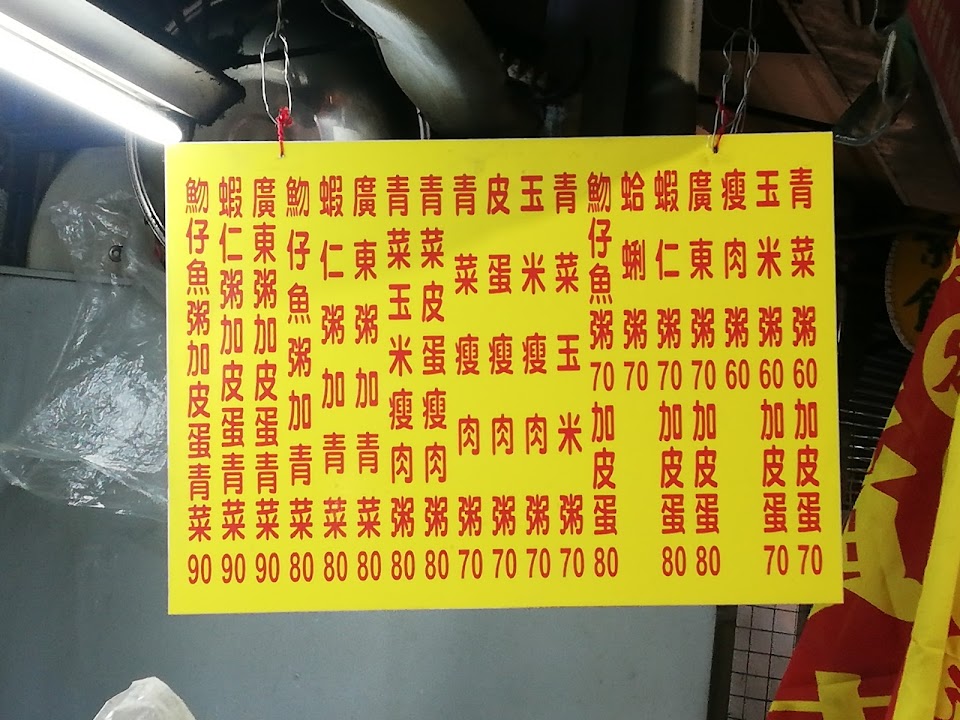 青菜粥60加皮蛋70
玉米粥60加皮蛋70
瘦肉粥60
廣東粥70加皮蛋80
蝦仁粥70加皮蛋80
蛤蜊粥70
魩仔魚粥70加皮蛋80
青菜玉米粥70
玉米瘦肉粥70
皮蛋瘦肉粥70
青菜瘦肉粥70
青菜皮蛋瘦肉粥80
青菜玉米瘦肉粥80
廣東粥加青菜80
蝦仁粥加青菜80
魩仔魚粥加青菜80
廣東粥加皮蛋青菜90
蝦仁粥加皮蛋青菜90
魩仔魚粥加皮蛋青菜90